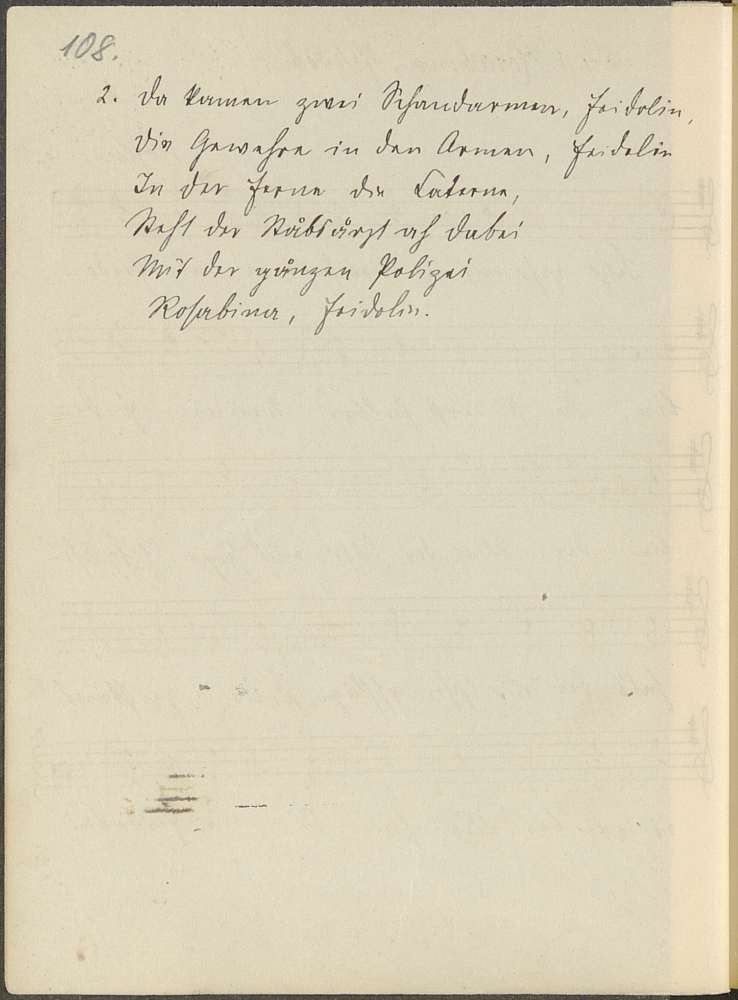 108.
2. Da kamen zwei Schandarmen, Fridolin,
Die Gewehre in den Armen, Fridolin
In der Ferne die Laterne,
Steht der Stabsarzt ach dabei
Mit der ganzen Polizei
Rosabina, Fridolin.